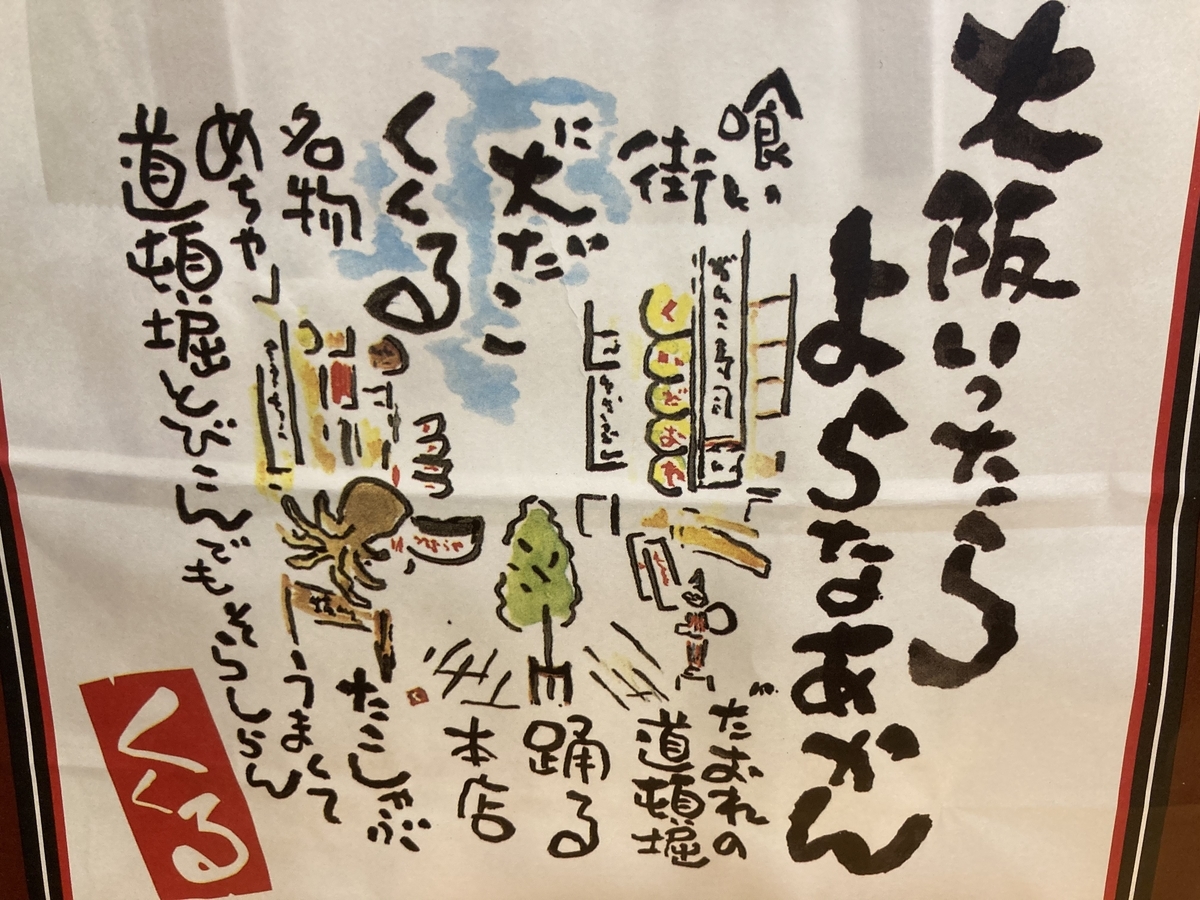 大阪いったら
よらなあかん
喰いだおれの
街 道頓堀
に 踊る
大だこ
くくる 本店
名物 たこしゃぶ
めちゃ うまくて
道頓堀とびこんでもそらしらん
くいだおれ
くくる